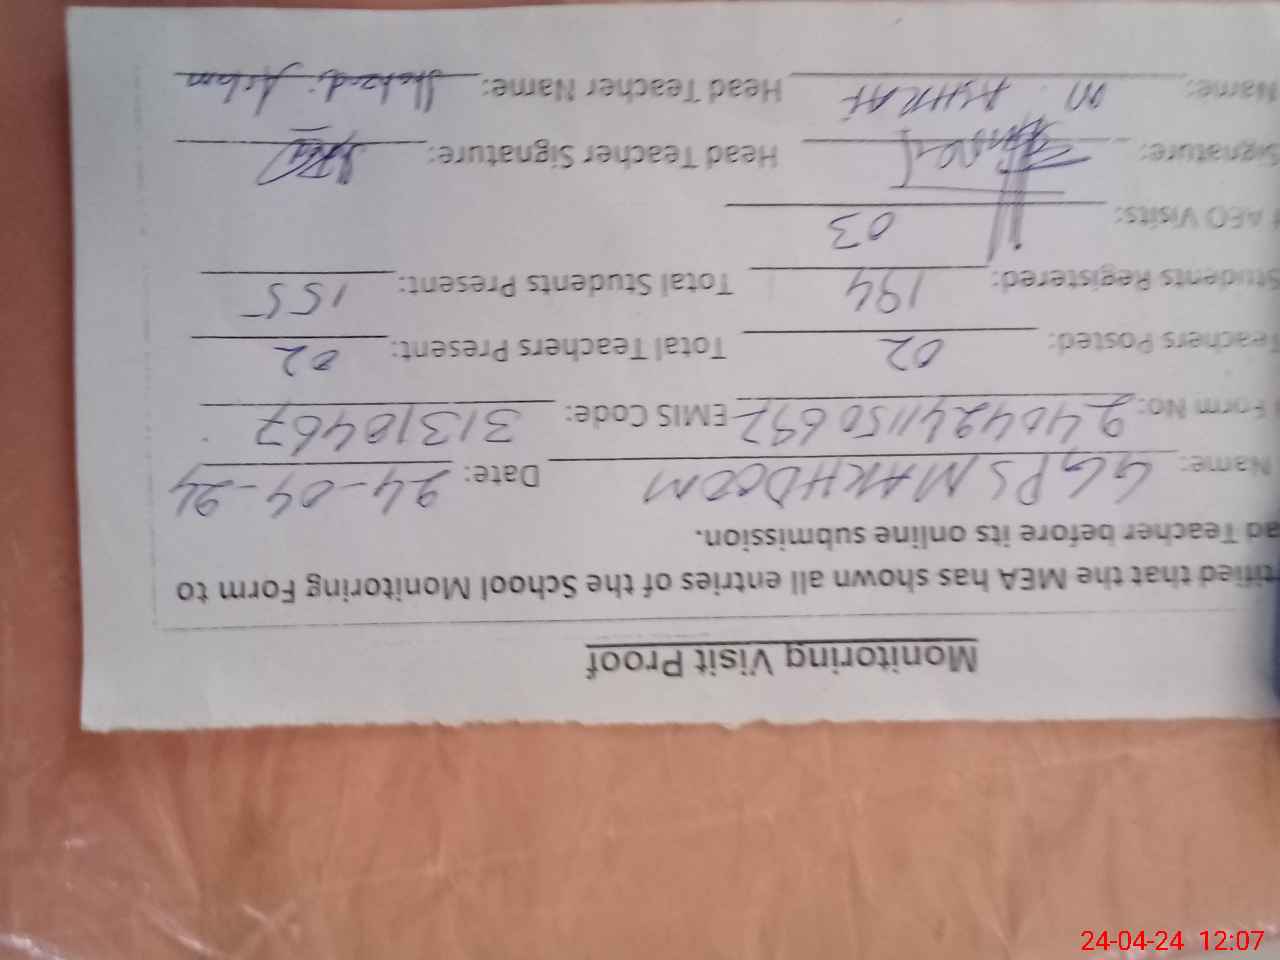 Monitoring Visit Proof
tified that the MEA has shown all entries of the School Monitoring Form to
ad Teacher before its online submission.
Name: GGPS MAKHDOOM Date: 24-04-24
Form No: 240424115069 EMIS Code: 31310467
Teachers Posted: 02 Total Teachers Present: 02
Students Registered: 194 Total Students Present: 155
AEO Visits: 03
Signature: Head Teacher Signature:
Name: M ASHRAF Head Teacher Name: Shahzadi Aslam
24-04-24 12:07